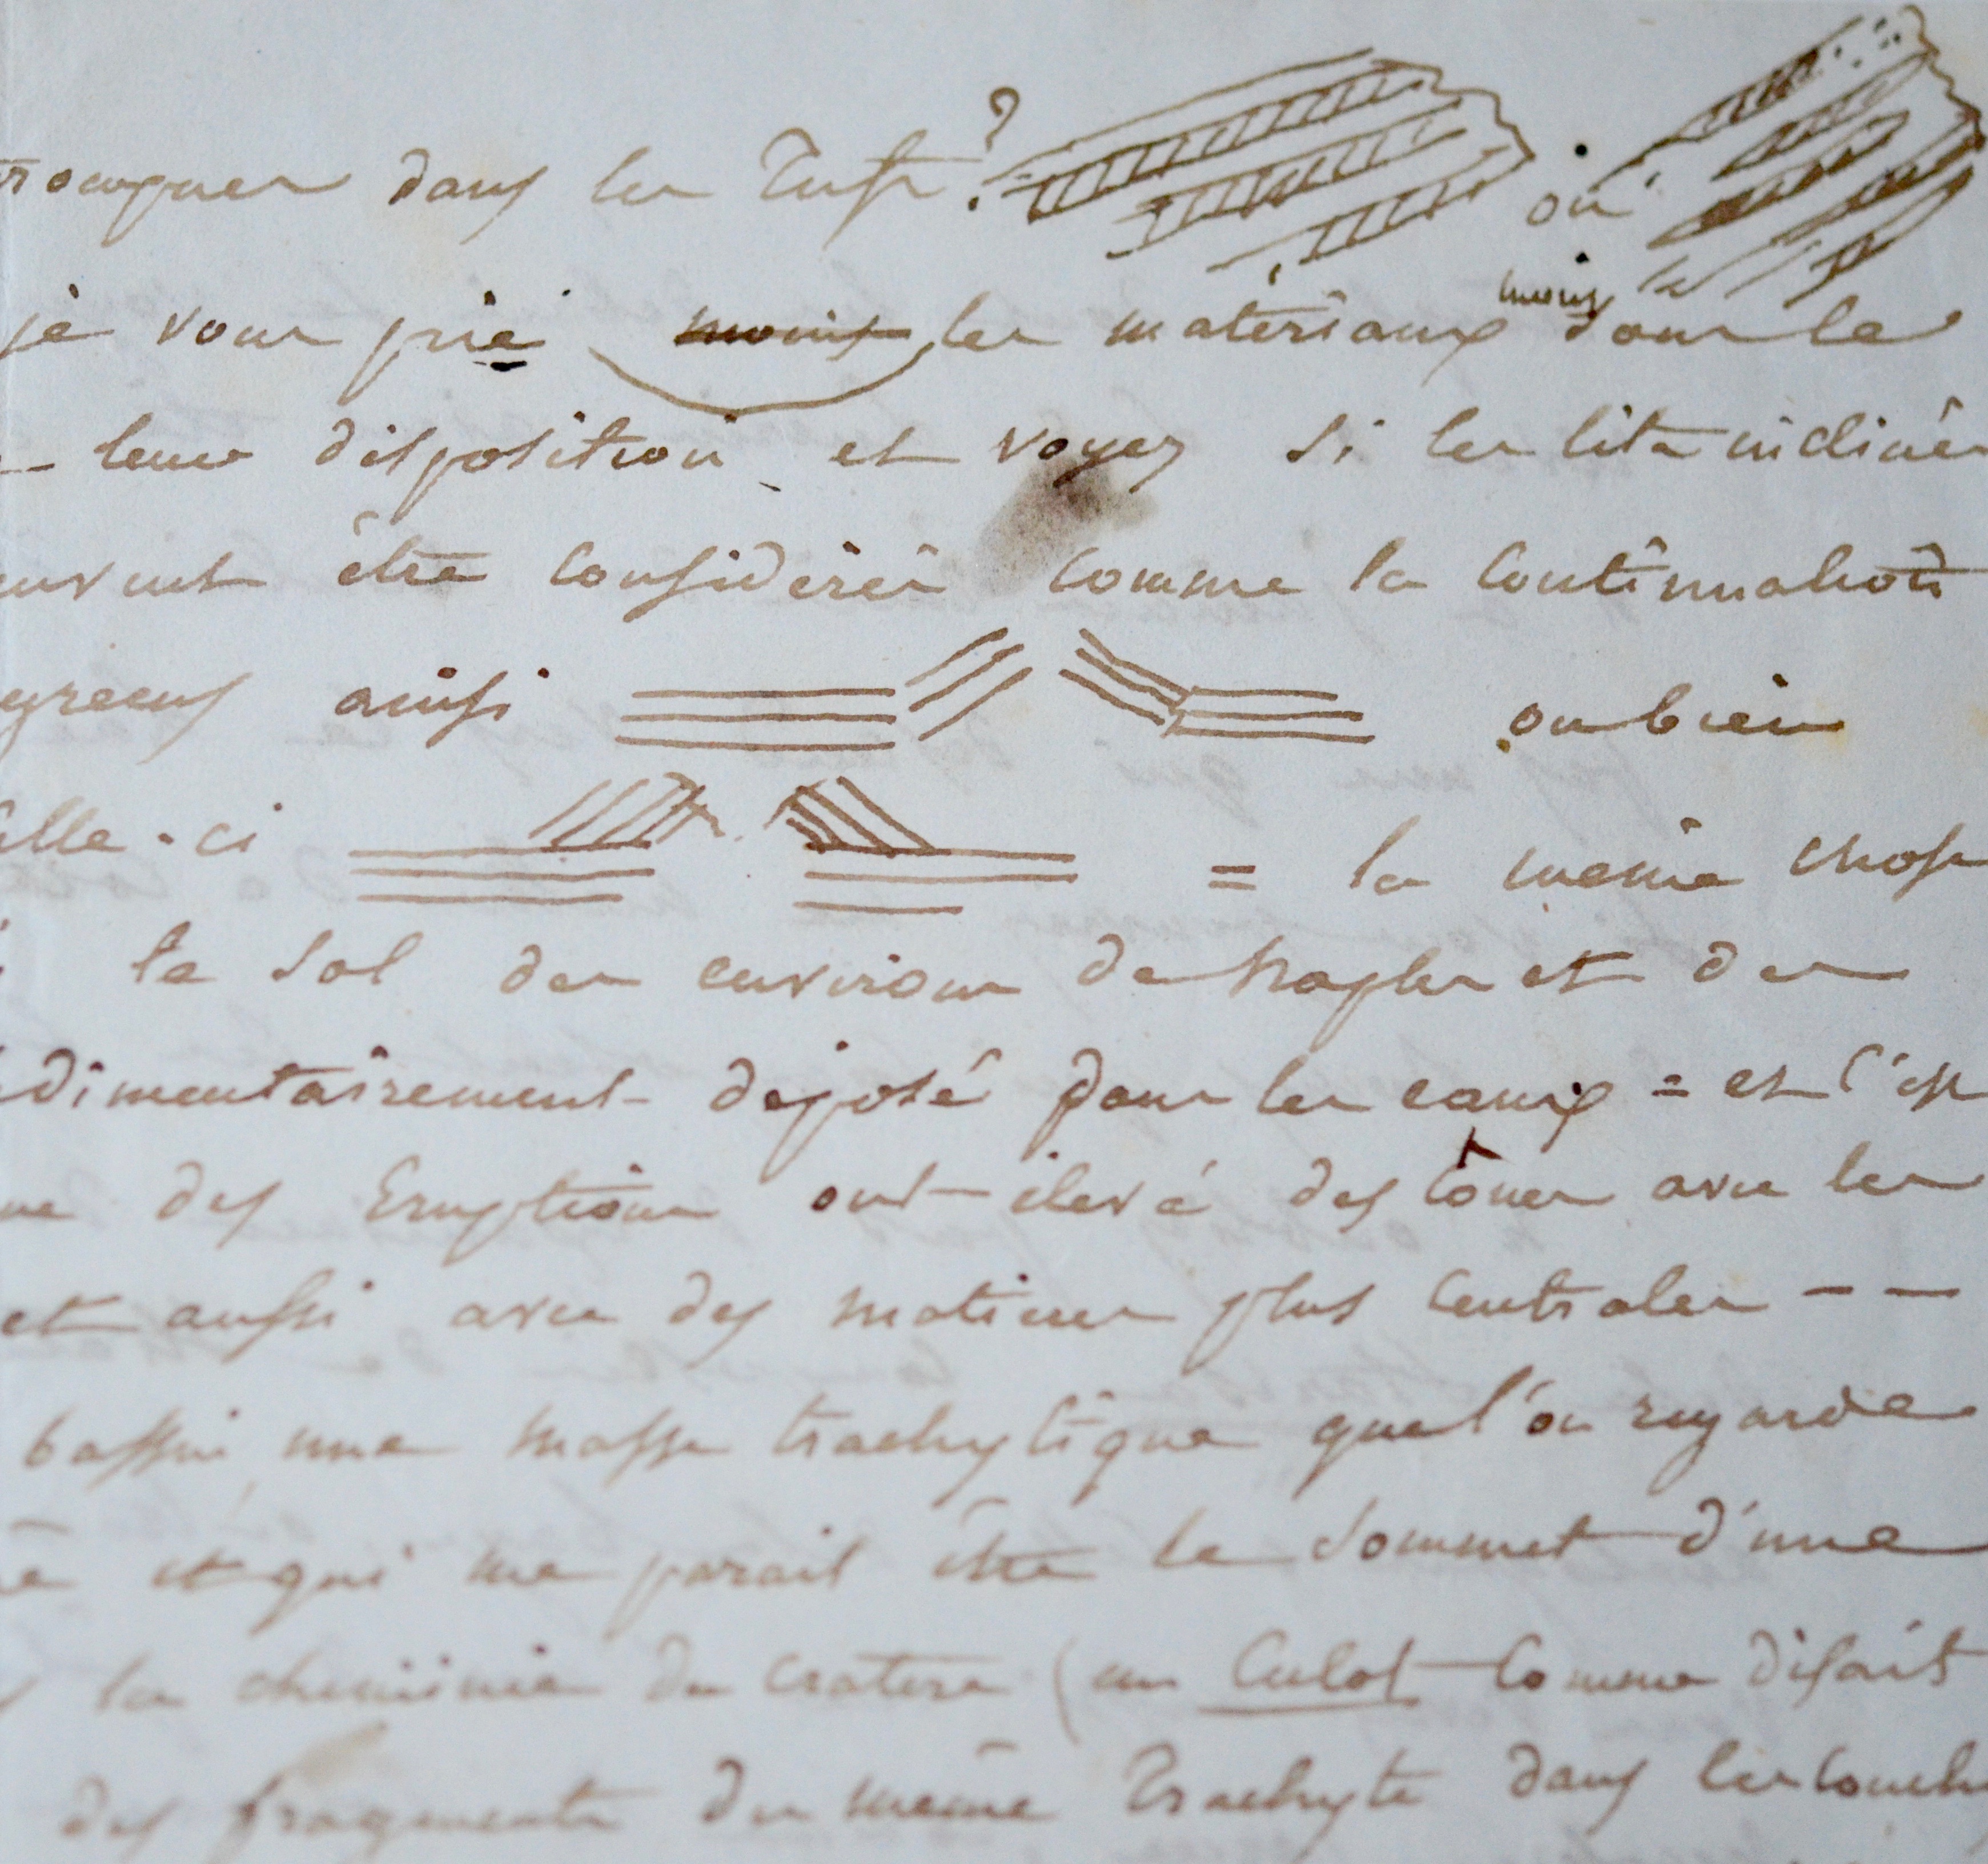 dans les Tufs ? ou
moins
je vous prie moins les materiaux dans le
leur disposition et voyez si les lits inclinés
être considérés comme la continuation
ainsi ou bien
celle-ci = la même chose
le sol des environs de Naples et des
dimentairement déposé dans les eaux = et c'est
des Eruptions ont élevé des cônes avec les
et aussi avec des matieres plus centrales - -
bassin une masse trachytique que l'on regarde
et qui me parait être le sommet d'une
la cheminée du cratere (un Culot comme disait
des fragments du même Trachyte dans les couches